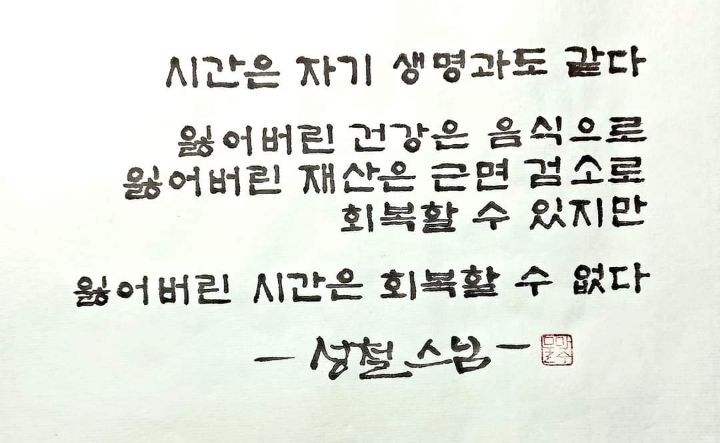 시간은 자기 생명과도 같다
잃어버린 건강은 음식으로
잃어버린 재산은 근면 검소로
회복할 수 있지만
잃어버린 시간은 회복할 수 없다
- 성철 스님 -